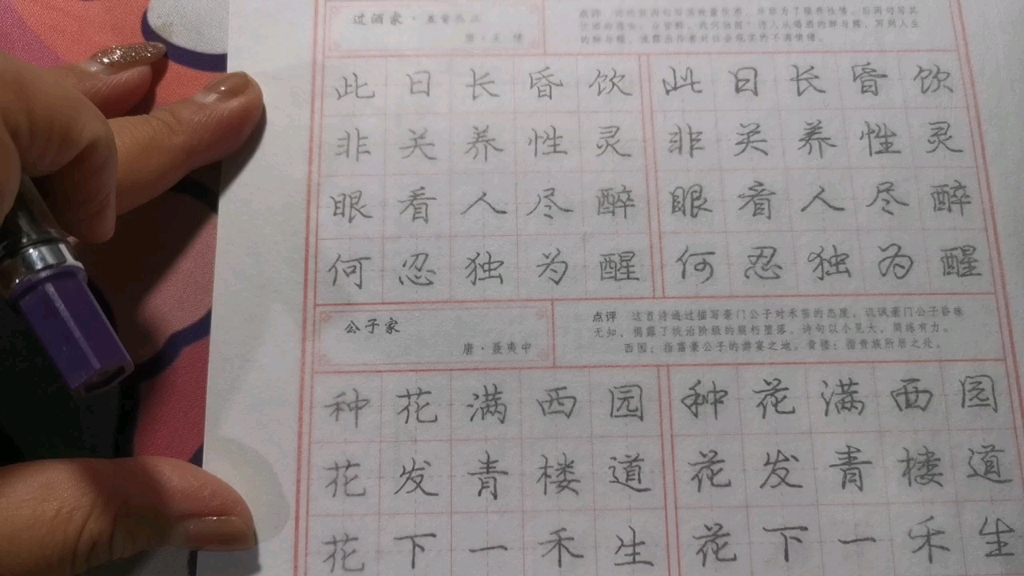 过酒家
唐·王绩
此日长昏饮 此日长昏饮
非关养性灵 非关养性灵
眼看人尽醉 眼看人尽醉
何忍独为醒 何忍独为醒
公子家
唐·聂夷中
点评 这首诗通过描写豪门公子对禾苗的态度，讥讽豪门公子昏昧
无知，揭露了统治阶级的腐朽堕落。诗句以小见大，简练有力。
西园：指富豪公子的游宴之地。青楼：指贵族所居之处。
种花满西园 种花满西园
花发青楼道 花发青楼道
花下一禾生 花下一禾生